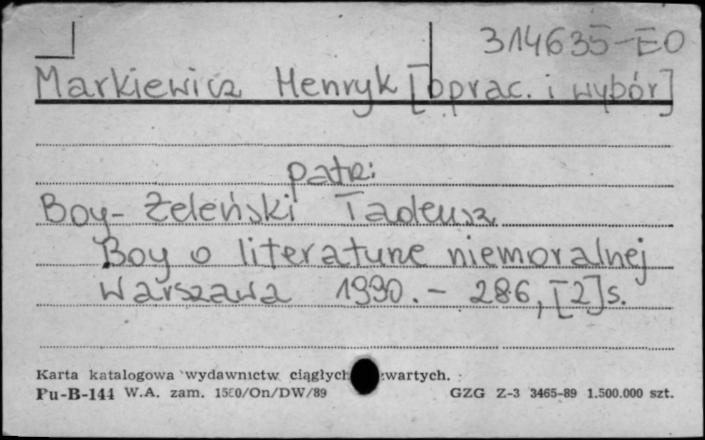 314635-EO
Markiewicz Henryk [oprac. i wybór]
patr:
Boy-Żeleński Tadeusz
Boy o literaturze niemoralnej
Warszawa 1990. - 286, [2] s.
Karta katalogowa wydawnictw ciągłych zwartych.
Pu-B-144 W.A. zam. 1580/On/DW/89 GZG Z-3 3465-89 1.500.000 szt.